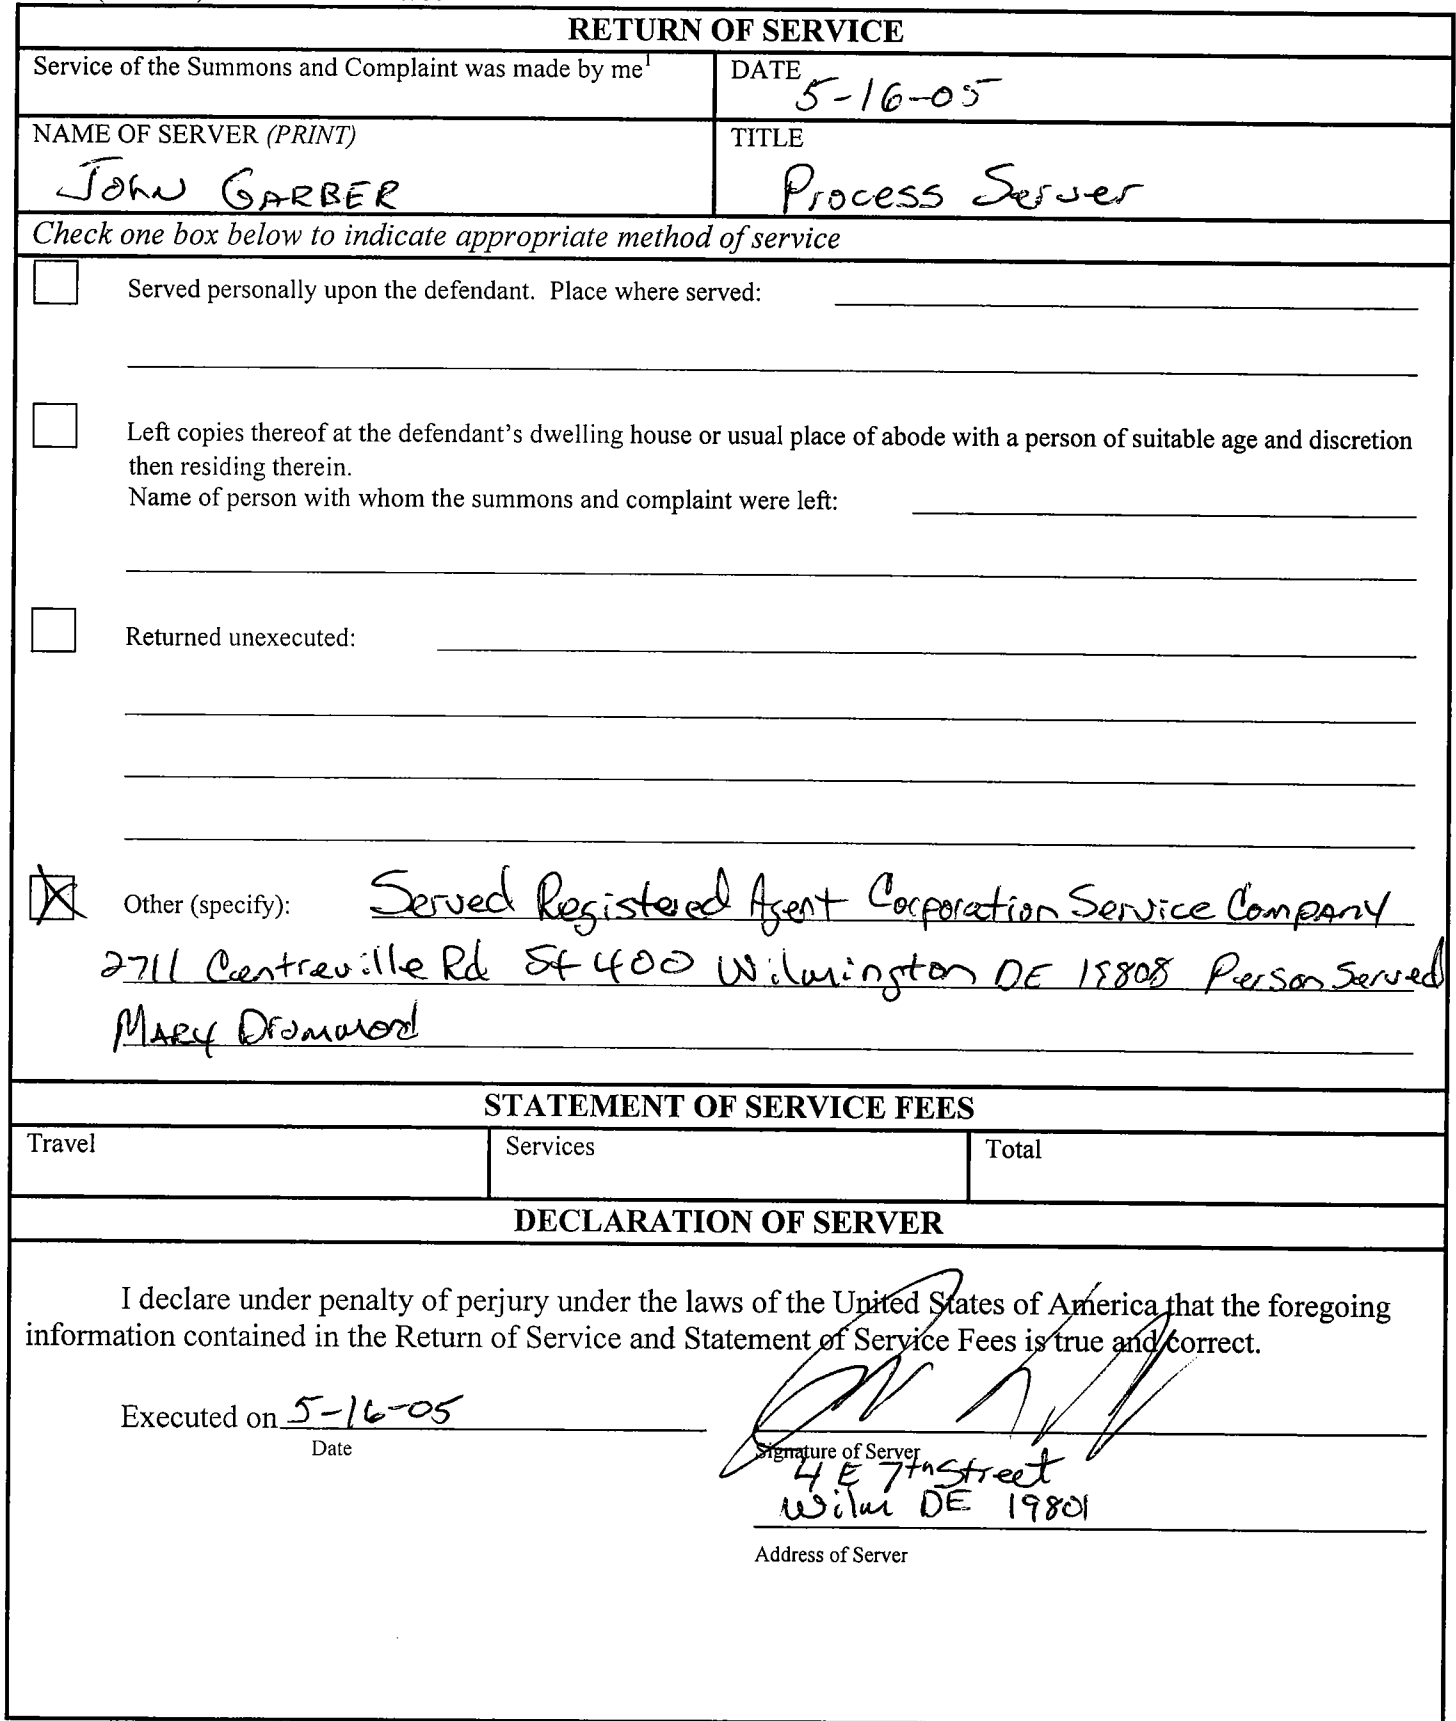 RETURN OF SERVICE
Service of the Summons and Complaint was made by me1
DATE
5-16-05
NAME OF SERVER (PRINT)
John GARBER
TITLE
Process Server
Check one box below to indicate appropriate method of service
Served personally upon the defendant. Place where served:
Left copies thereof at the defendant's dwelling house or usual place of abode with a person of suitable age and discretion
then residing therein.
Name of person with whom the summons and complaint were left:
Returned unexecuted:
Other (specify): Served Registered Agent Corporation Service Company
2711 Centreville Rd St 400 Wilmington DE 19808 Person Served
MARY Drummond
STATEMENT OF SERVICE FEES
Travel
Services
Total
DECLARATION OF SERVER
I declare under penalty of perjury under the laws of the United States of America that the foregoing
information contained in the Return of Service and Statement of Service Fees is true and correct.
Executed on 5-16-05
Date
Signature of Server
4 E 7th Street
Wilm DE 19801
Address of Server